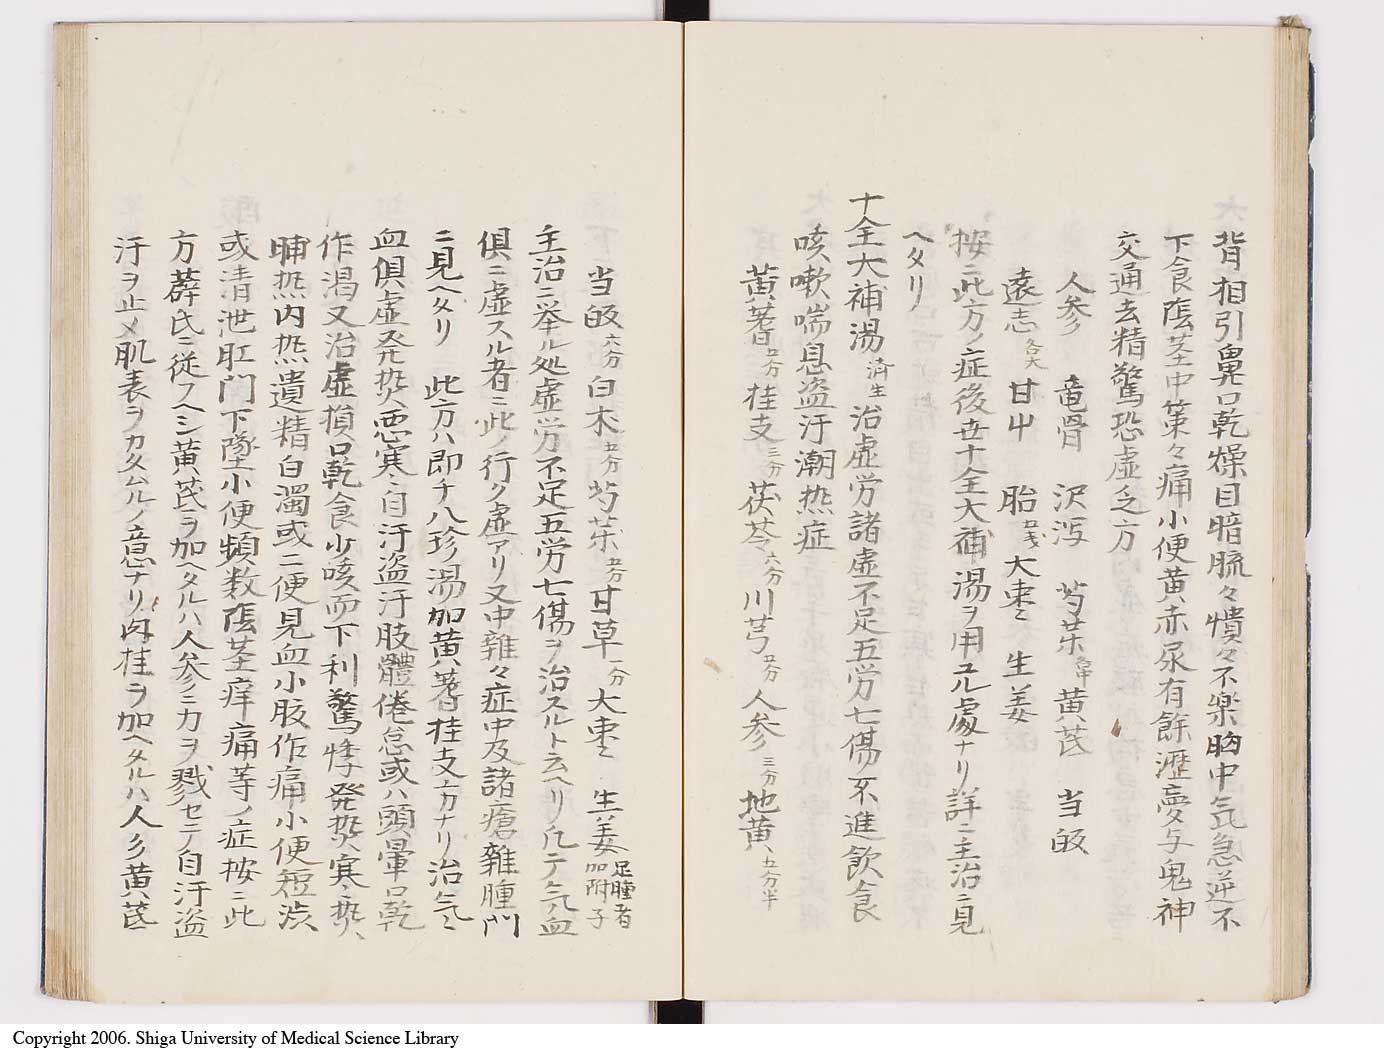 背相引鼻口乾燥目暗䀮々憒々不楽胸中気急逆不
下食陰茎中策々痛小便黄赤尿有餘瀝夢与鬼神
交通去精驚恐虚乏方
人参 竜骨 沢瀉 芍薬 黄芪 当皈
遠志各大 甘艸 胎 大枣 生姜
按ニ此方ノ症後世十全大補湯ヲ用ユル處ナリ詳ニ主治ニ見
ヘタリ
十全大補湯済生 治虚労諸虚不足五労七傷不進飲食
咳嗽喘息盗汗潮热症
黄蓍五分 桂支三分 茯苓六分 川芎五分 人参三分 地黄五分半
当皈六分 白朮五分 芍薬五分 甘草一分 大枣 生姜 足腫者加附子
主治ニ举ル処虚労不足五労七傷ヲ治スルト云ヘリ凡テ气血
俱ニ虚スル者ニ此ノ行ク虚アリ又中雜々症中及諸瘡雜腫門
ニ見ヘタリ 此方ハ即チ八珍湯加黄蓍桂支方ナリ治气
血俱虚発热悪寒自汗盗汗肢體倦怠或ハ頭暈口乾
作渇又治虚損口乾食少咳而下利驚悸発热寒热
晡热内热遺精白濁或二便見血小腹作痛小便短渋
或清泄肛門下墜小便頻数陰茎痒痛等ノ症按ニ此
方薜氏ニ從フヘシ黄芪ヲ加ヘタルハ人参ニ力ヲ戮セテ自汗盗
汗ヲ止メ肌表ヲカタムルノ意ナリ肉桂ヲ加ヘタルハ人参黄芪
Copyright 2006. Shiga University of Medical Science Library